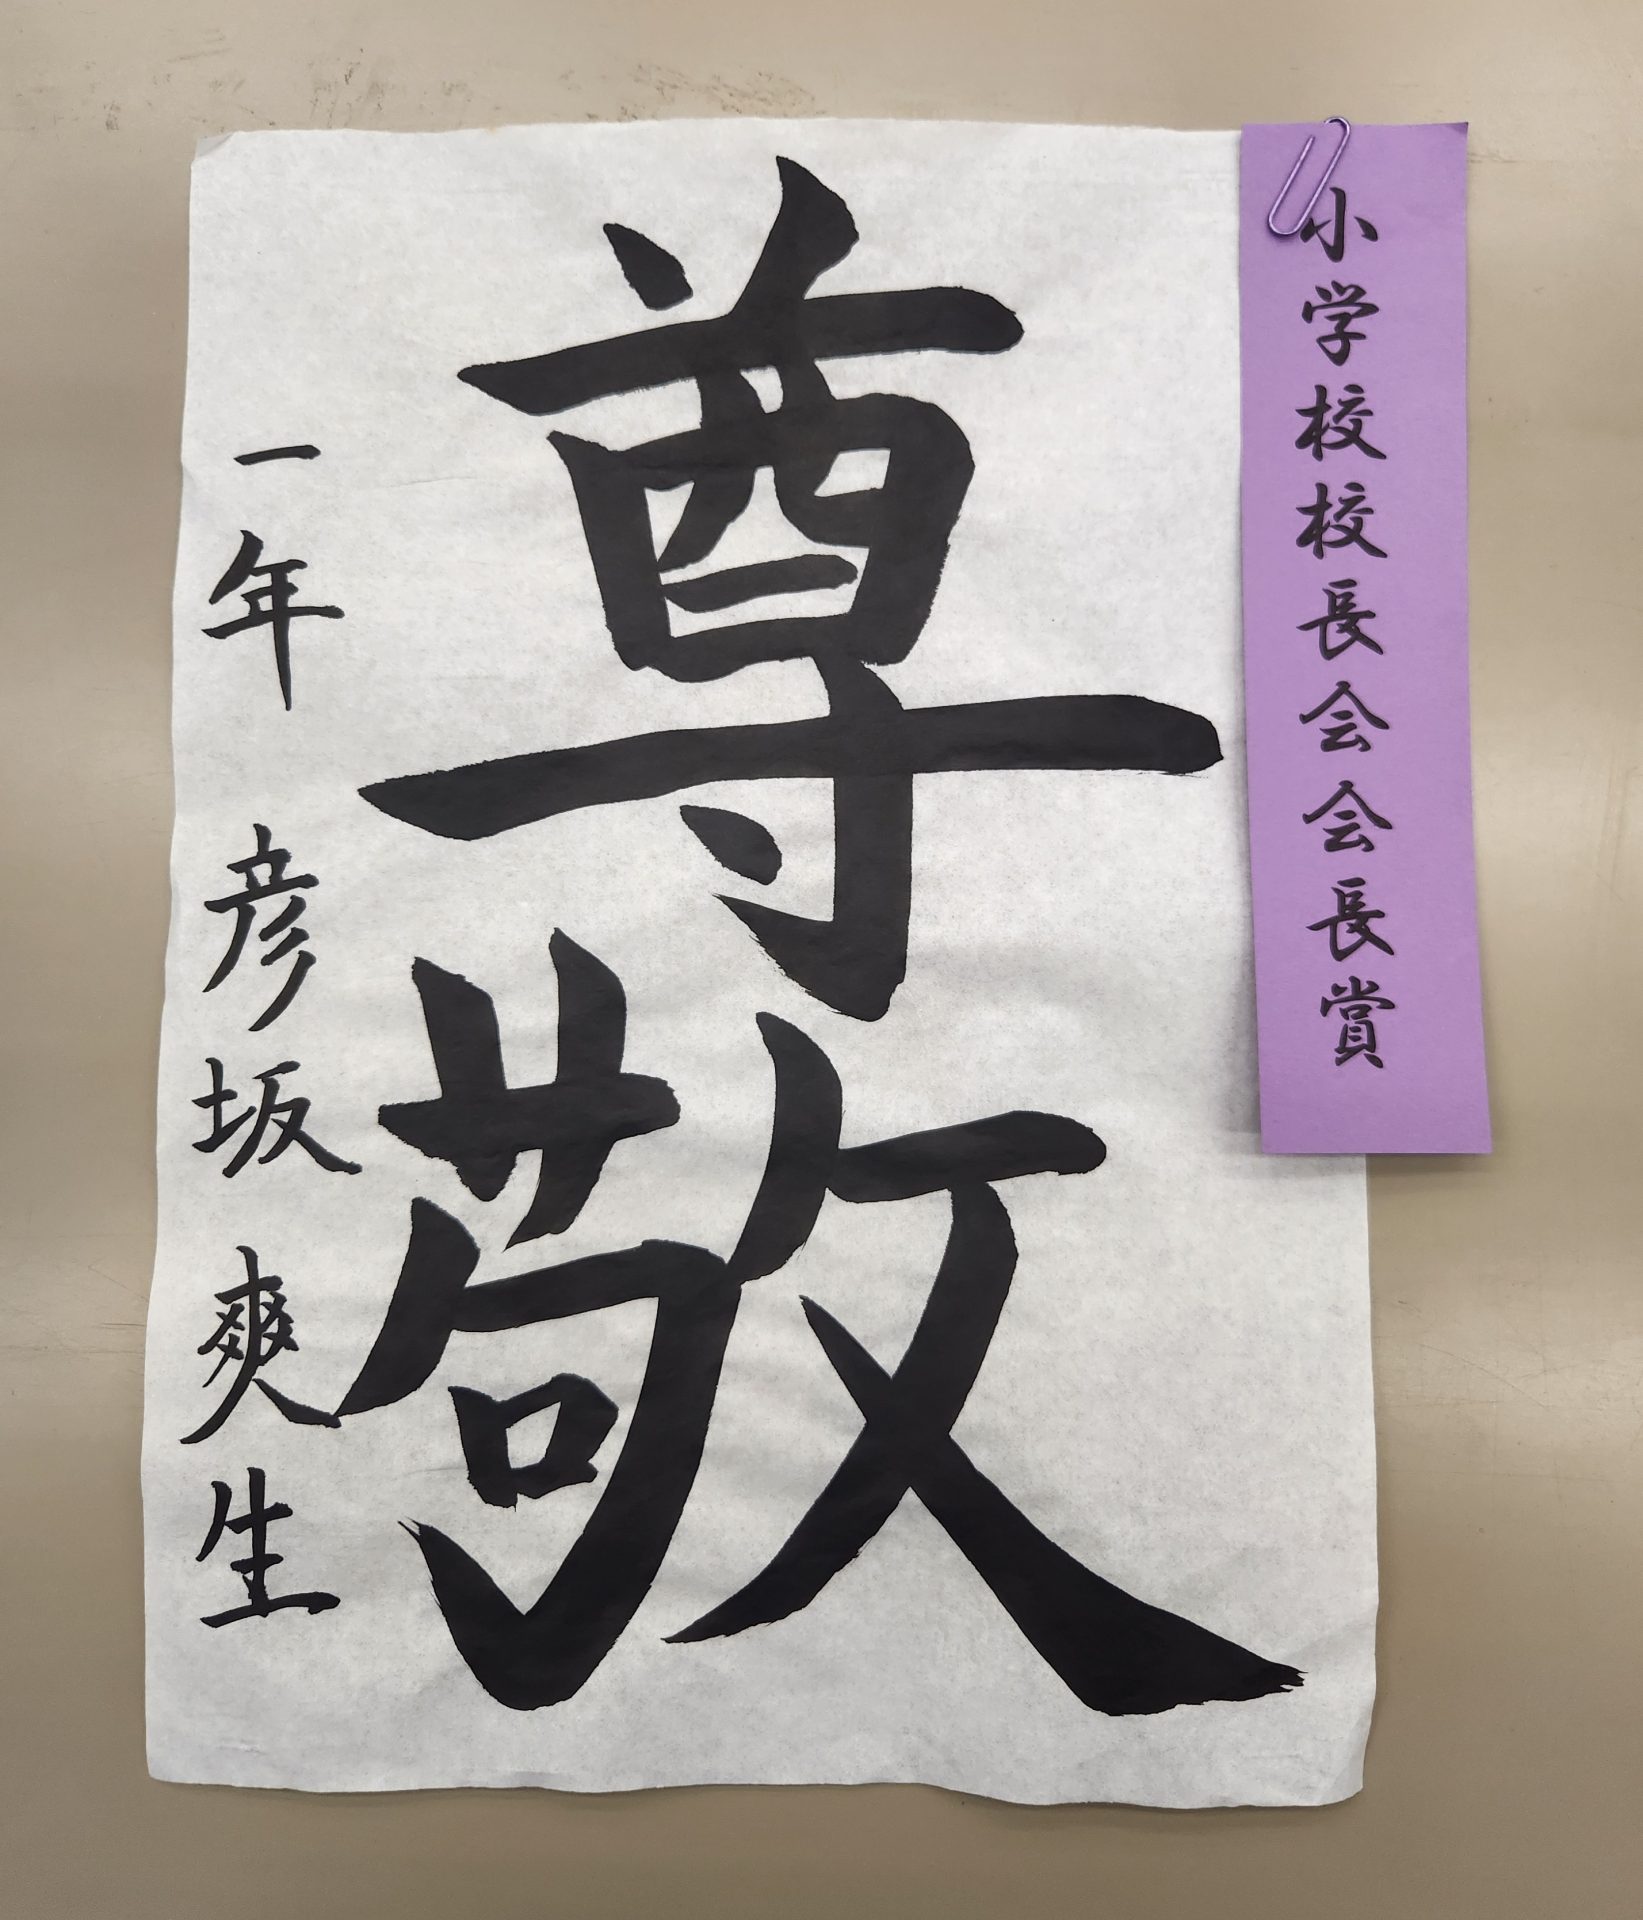 小学校校長会会長賞
尊敬
一年 彦坂爽生